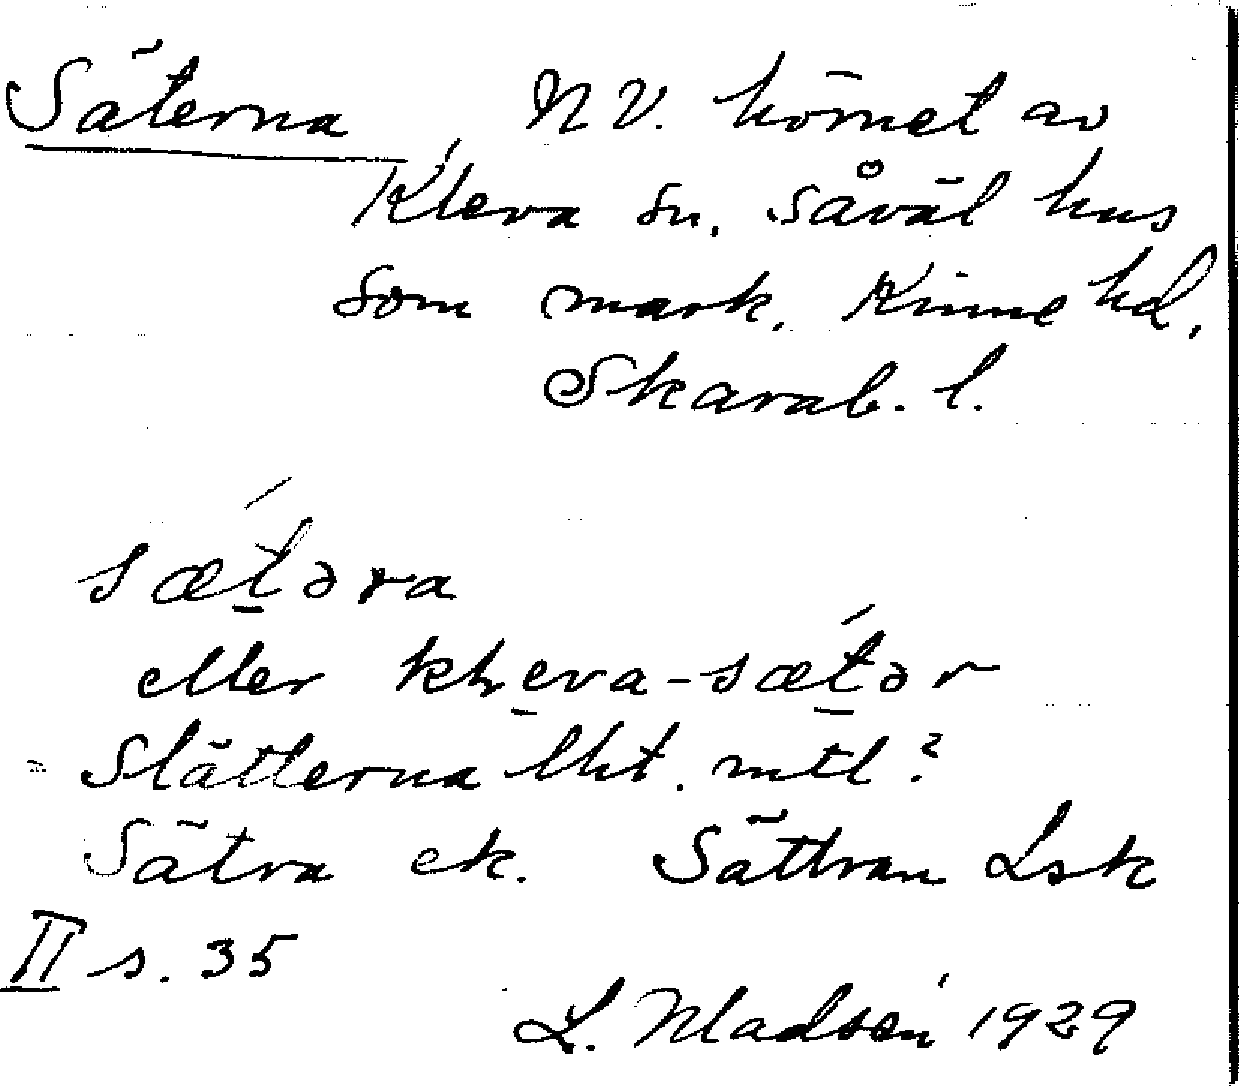 Säterna, NV. hörnet av
Kleva sn. såväl hus
som mark. Kinne hd,
Skarab. l.
sæ̀təra
eller kleva-sætər
Slätterna lht. mtl?
Sätra ek. Sättran Lsk
II s. 35
L. Madsén 1929